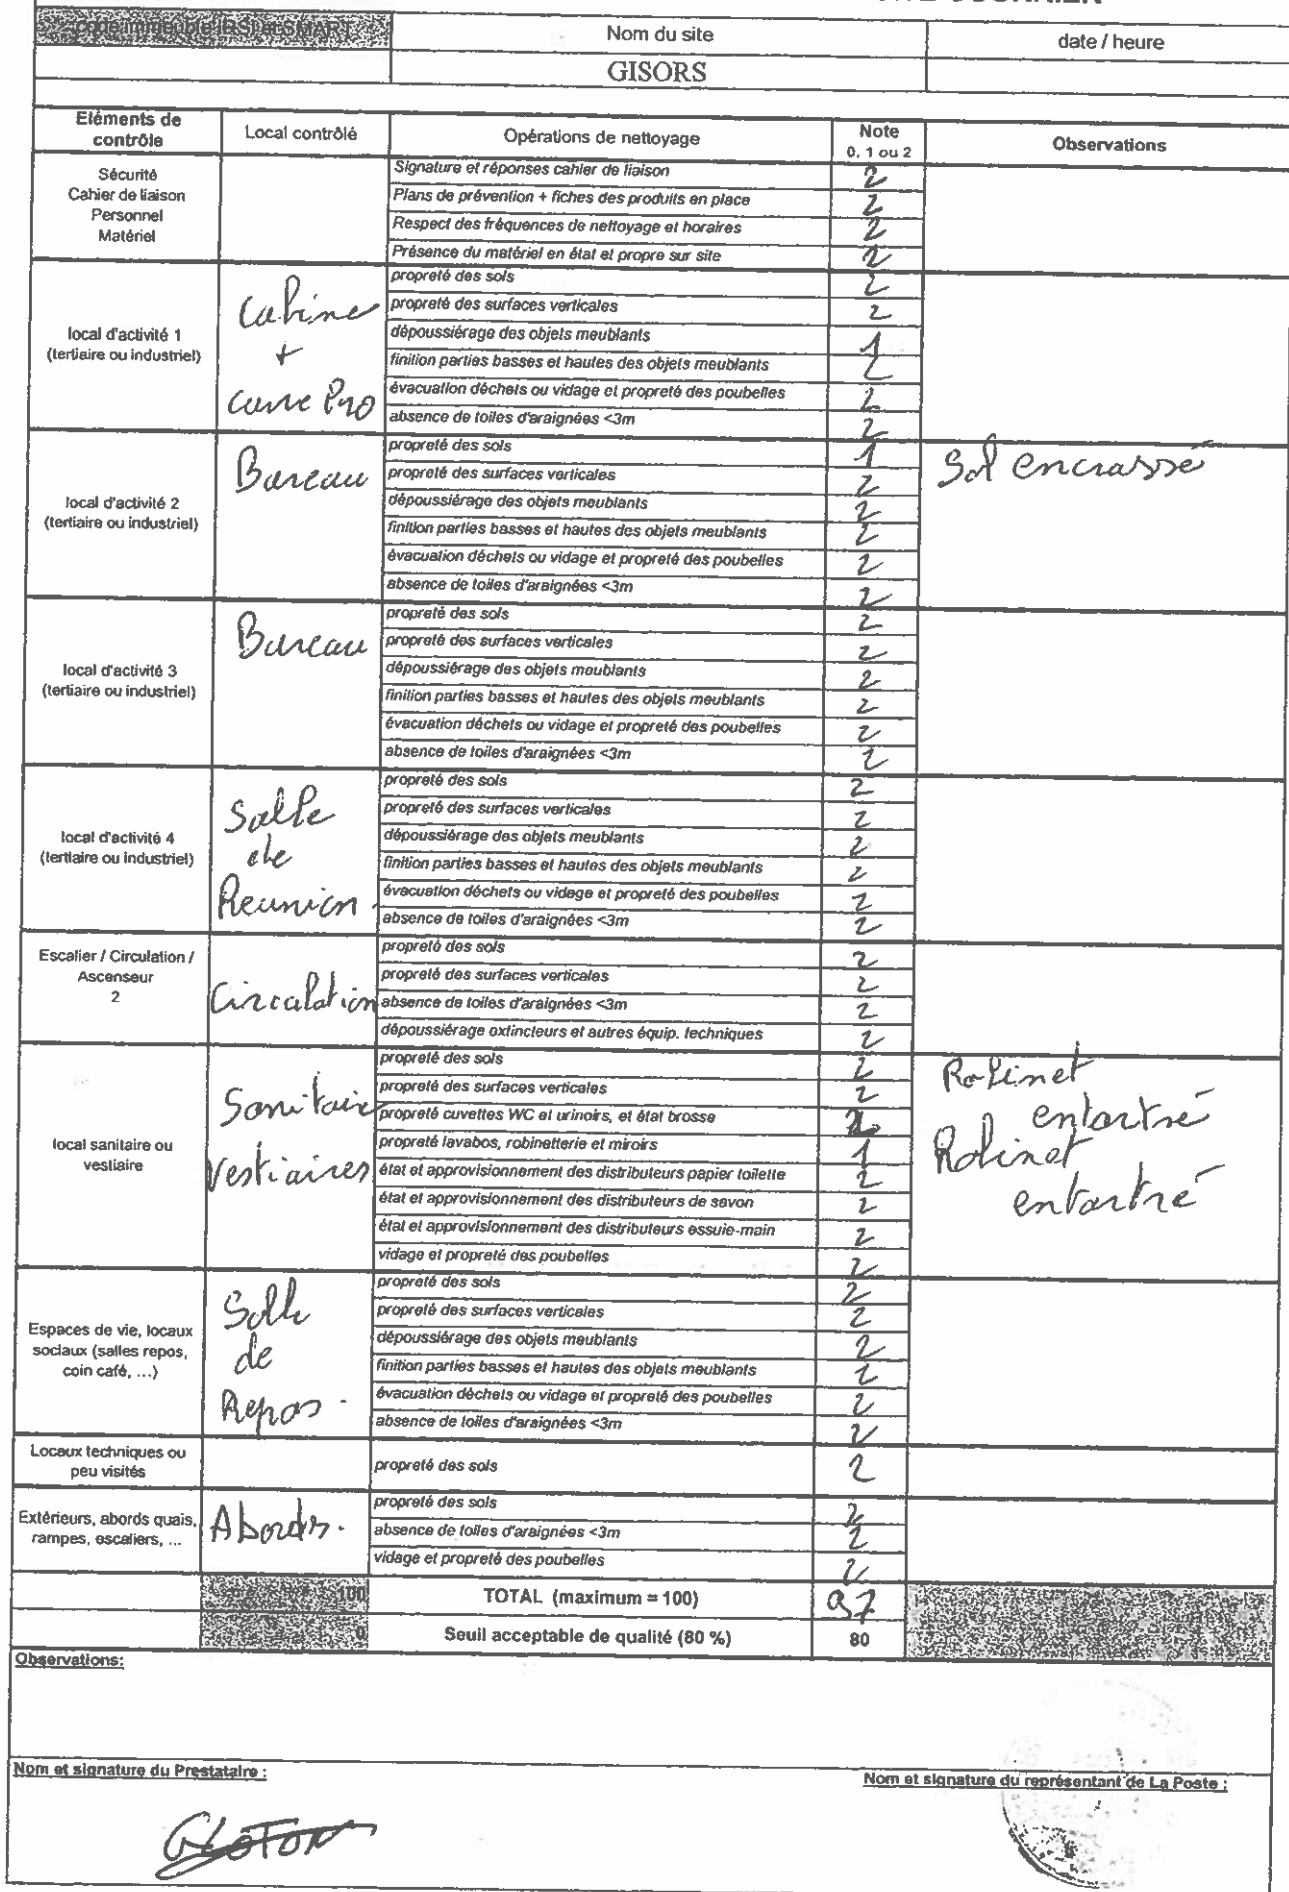 code immeuble (BSI et SMART)
Nom du site
date / heure
GISORS
Eléments de contrôle
Local contrôlé
Opérations de nettoyage
Note 0, 1 ou 2
Observations
Sécurité
Cahier de liaison
Personnel
Matériel
Signature et réponses cahier de liaison 2
Plans de prévention + fiches des produits en place 2
Respect des fréquences de nettoyage et horaires 2
Présence du matériel en état et propre sur site 2
local d'activité 1
(tertiaire ou industriel)
Cabine
+
Carre Pro
propreté des sols 2
propreté des surfaces verticales 2
dépoussiérage des objets meublants 1
finition parties basses et hautes des objets meublants 2
évacuation déchets ou vidage et propreté des poubelles 2
absence de toiles d'araignées <3m 2
local d'activité 2
(tertiaire ou industriel)
Bureau
propreté des sols 1 Sol encrassé
propreté des surfaces verticales 2
dépoussiérage des objets meublants 2
finition parties basses et hautes des objets meublants 2
évacuation déchets ou vidage et propreté des poubelles 2
absence de toiles d'araignées <3m 2
local d'activité 3
(tertiaire ou industriel)
Bureau
propreté des sols 2
propreté des surfaces verticales 2
dépoussiérage des objets meublants 2
finition parties basses et hautes des objets meublants 2
évacuation déchets ou vidage et propreté des poubelles 2
absence de toiles d'araignées <3m 2
local d'activité 4
(tertiaire ou industriel)
Salle
de
Reunion.
propreté des sols 2
propreté des surfaces verticales 2
dépoussiérage des objets meublants 2
finition parties basses et hautes des objets meublants 2
évacuation déchets ou vidage et propreté des poubelles 2
absence de toiles d'araignées <3m 2
Escalier / Circulation /
Ascenseur
2
Circulation
propreté des sols 2
propreté des surfaces verticales 2
absence de toiles d'araignées <3m 2
dépoussiérage extincteurs et autres équip. techniques 2
local sanitaire ou
vestiaire
Sanitaire
Vestiaires
propreté des sols 2
propreté des surfaces verticales 2
propreté cuvettes WC et urinoirs, et état brosse 2
propreté lavabos, robinetterie et miroirs 1
état et approvisionnement des distributeurs papier toilette 2
état et approvisionnement des distributeurs de savon 2
état et approvisionnement des distributeurs essuie-main 2
vidage et propreté des poubelles 2
Robinet
entartré
Robinet
entartré
Espaces de vie, locaux
sociaux (salles repos,
coin café, ...)
Salle
de
Repos.
propreté des sols 2
propreté des surfaces verticales 2
dépoussiérage des objets meublants 2
finition parties basses et hautes des objets meublants 2
évacuation déchets ou vidage et propreté des poubelles 2
absence de toiles d'araignées <3m 2
Locaux techniques ou
peu visités
propreté des sols 2
Extérieurs, abords quais,
rampes, escaliers, ...
Abords.
propreté des sols 2
absence de toiles d'araignées <3m 2
vidage et propreté des poubelles 2
100 TOTAL (maximum = 100) 97
0 Seuil acceptable de qualité (80 %) 80
Observations:
Nom et signature du Prestataire :
Nom et signature du représentant de La Poste :
GLOTON